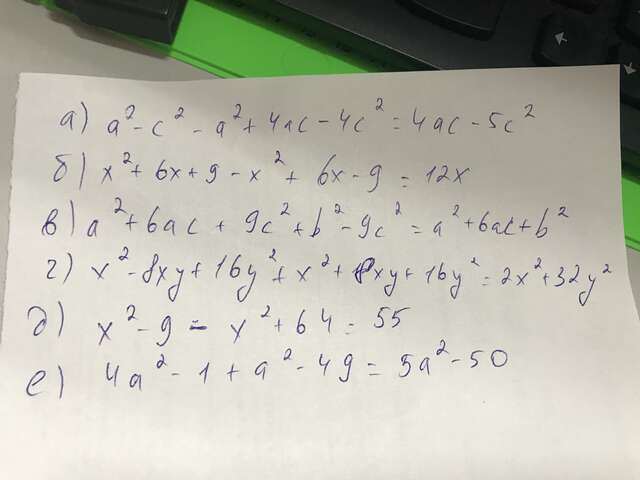 а) a² - c² - a² + 4ac - 4c² = 4ac - 5c²
б) x² + 6x + 9 - x² + 6x - 9 = 12x
в) a² + 6ac + 9c² + b² - 9c² = a² + 6ac + b²
г) x² - 8xy + 16y² + x² + 8xy + 16y² = 2x² + 32y²
д) x² - 9 - x² + 64 = 55
е) 4a² - 1 + a² - 49 = 5a² - 50